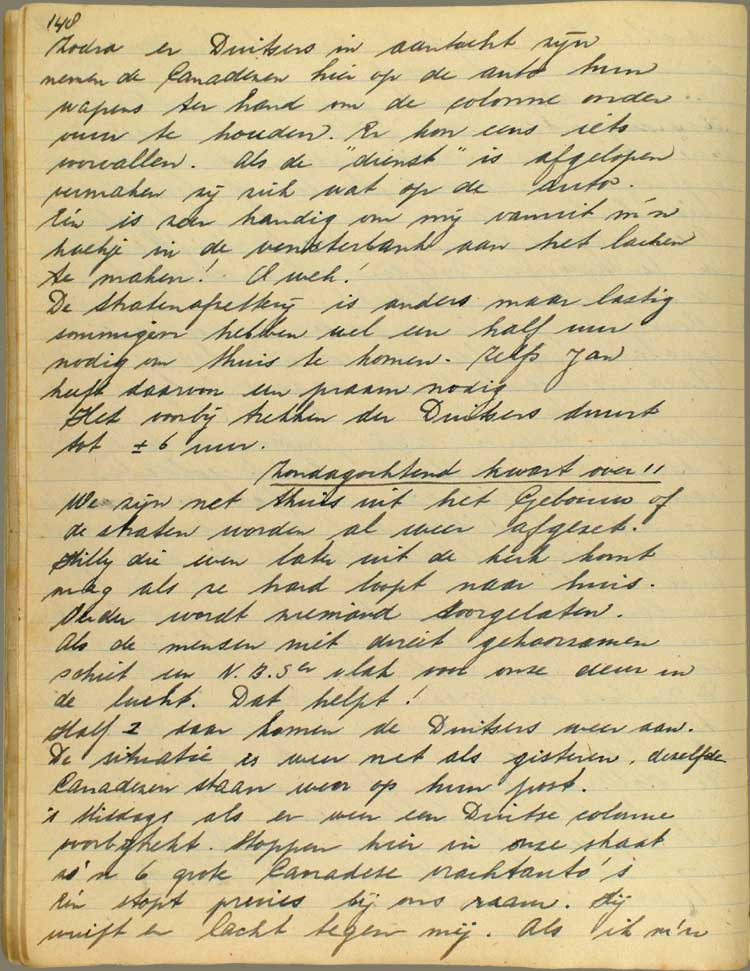 148
Zodra er Duitsers in aantocht zijn
nemen de Canadezen hier op de auto hun
wapens ter hand om de colonne onder
vuur te houden. Er kon eens iets
voorvallen. Als de "dienst" is afgelopen
vermaken zij zich wat op de auto.
Eén is zeer handig om mij vanuit m'n
hoekje in de vensterbank aan het lachen
te maken! O weh!
De stratenafzetterij is anders maar lastig
sommigen hebben wel een half uur
nodig om thuis te komen. Zelfs Jan
heeft daarvoor een praam nodig
Het voorbij trekken der Duitsers duurt
tot ± 6 uur.
Zondagochtend kwart over 11
We zijn net thuis uit het Gebouw of
de straten worden al weer afgezet.
Hilly die even later uit de kerk komt
mag als ze hard loopt naar huis.
Verder wordt niemand doorgelaten.
Als de mensen niet direct gehoorzamen
schiet een N.B.S.er vlak voor onze deur in
de lucht. Dat helpt!
Half 2 daar komen de Duitsers weer aan.
De situatie is weer net als gisteren, dezelfde
Canadezen staan weer op hun post.
's Middags als er weer een Duitse colonne
voorbijtrekt. Stoppen hier in onze straat
zo'n 6 grote Canadese vrachtauto's
Eén stopt precies bij ons raam. Hij
wuift en lacht tegen mij. Als ik m'n